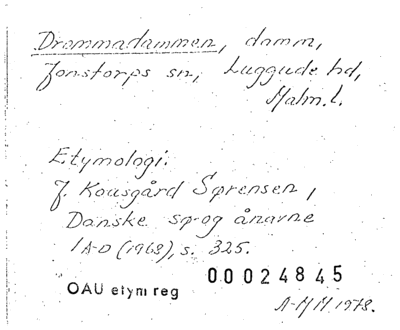 Drammadammen, damm,
Jonstorps sn, Luggude hd,
Malm. l.
Etymologi:
J. Kousgård Sørensen,
Danske sø- og ånavne
1 A-D (1968), s. 325.
00024845
OAU etym reg
A-M H 1978.